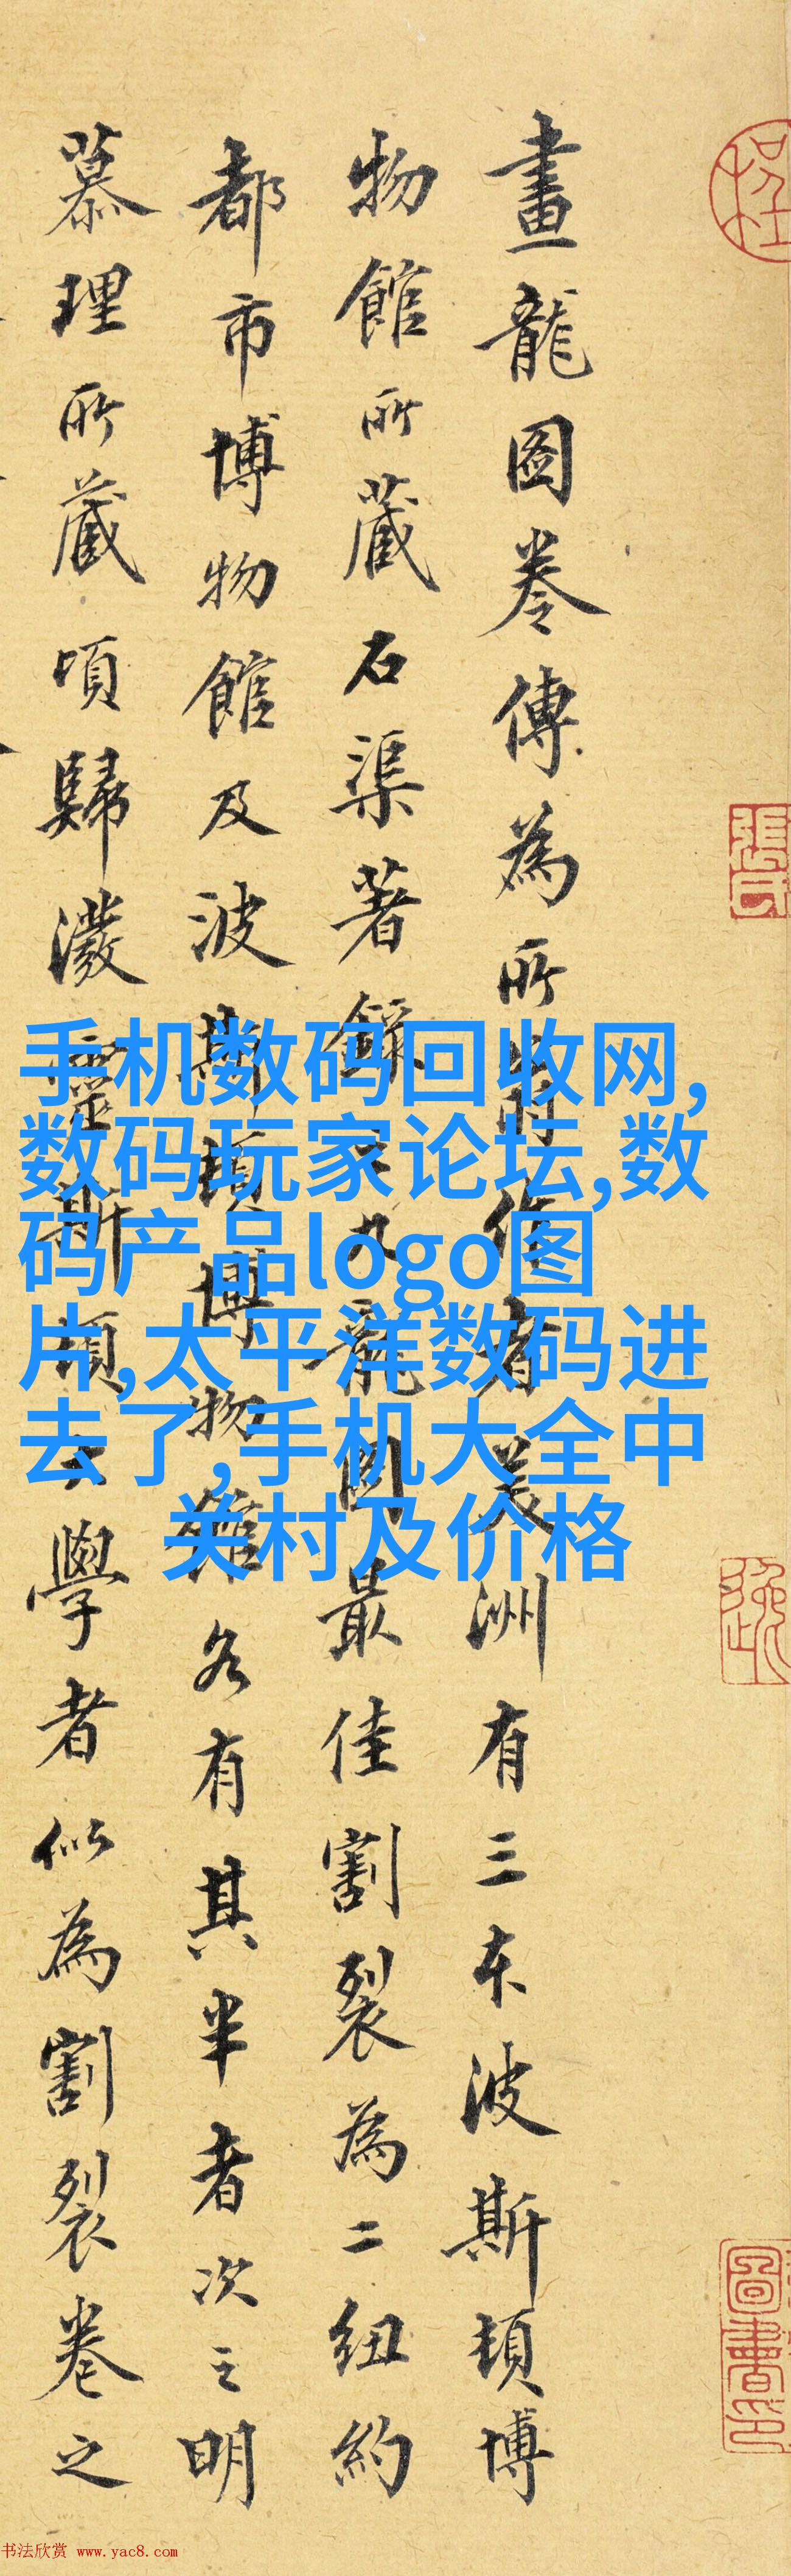 畫龍圖卷傳為所翁作者美洲有三本波斯頓博
物館所藏石渠著錄之九龍圖最佳割裂為二紐約
都市博物館及波斯頓博物館各有其半者次之明
慕理所藏頃歸潑靈斯頓大學者似為割裂卷之
手机数码回收网,
数码玩家论坛,数
码产品logo图
片,太平洋数码进
去了,手机大全中
关村及价格
張氏
书法欣赏 www.yac8.com